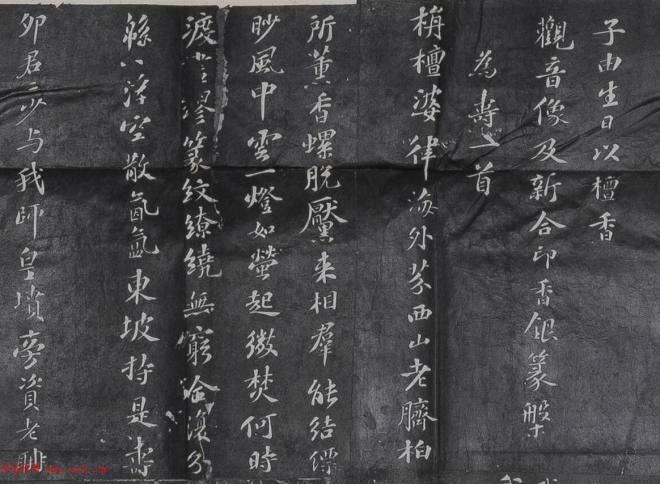 子由生日以檀香
觀音像及新合印香銀篆槃
為壽一首
栴檀婆律海外芬西山老臍柏
所薰香螺脫黶来相羣能结縹
眇風中雲一燈如螢起微焚何時
渡盡繆篆紋繚繞無窮合復分
緜〻浮空散氤氲東坡持是壽
卯君〻少与我師皇墳旁資老聃